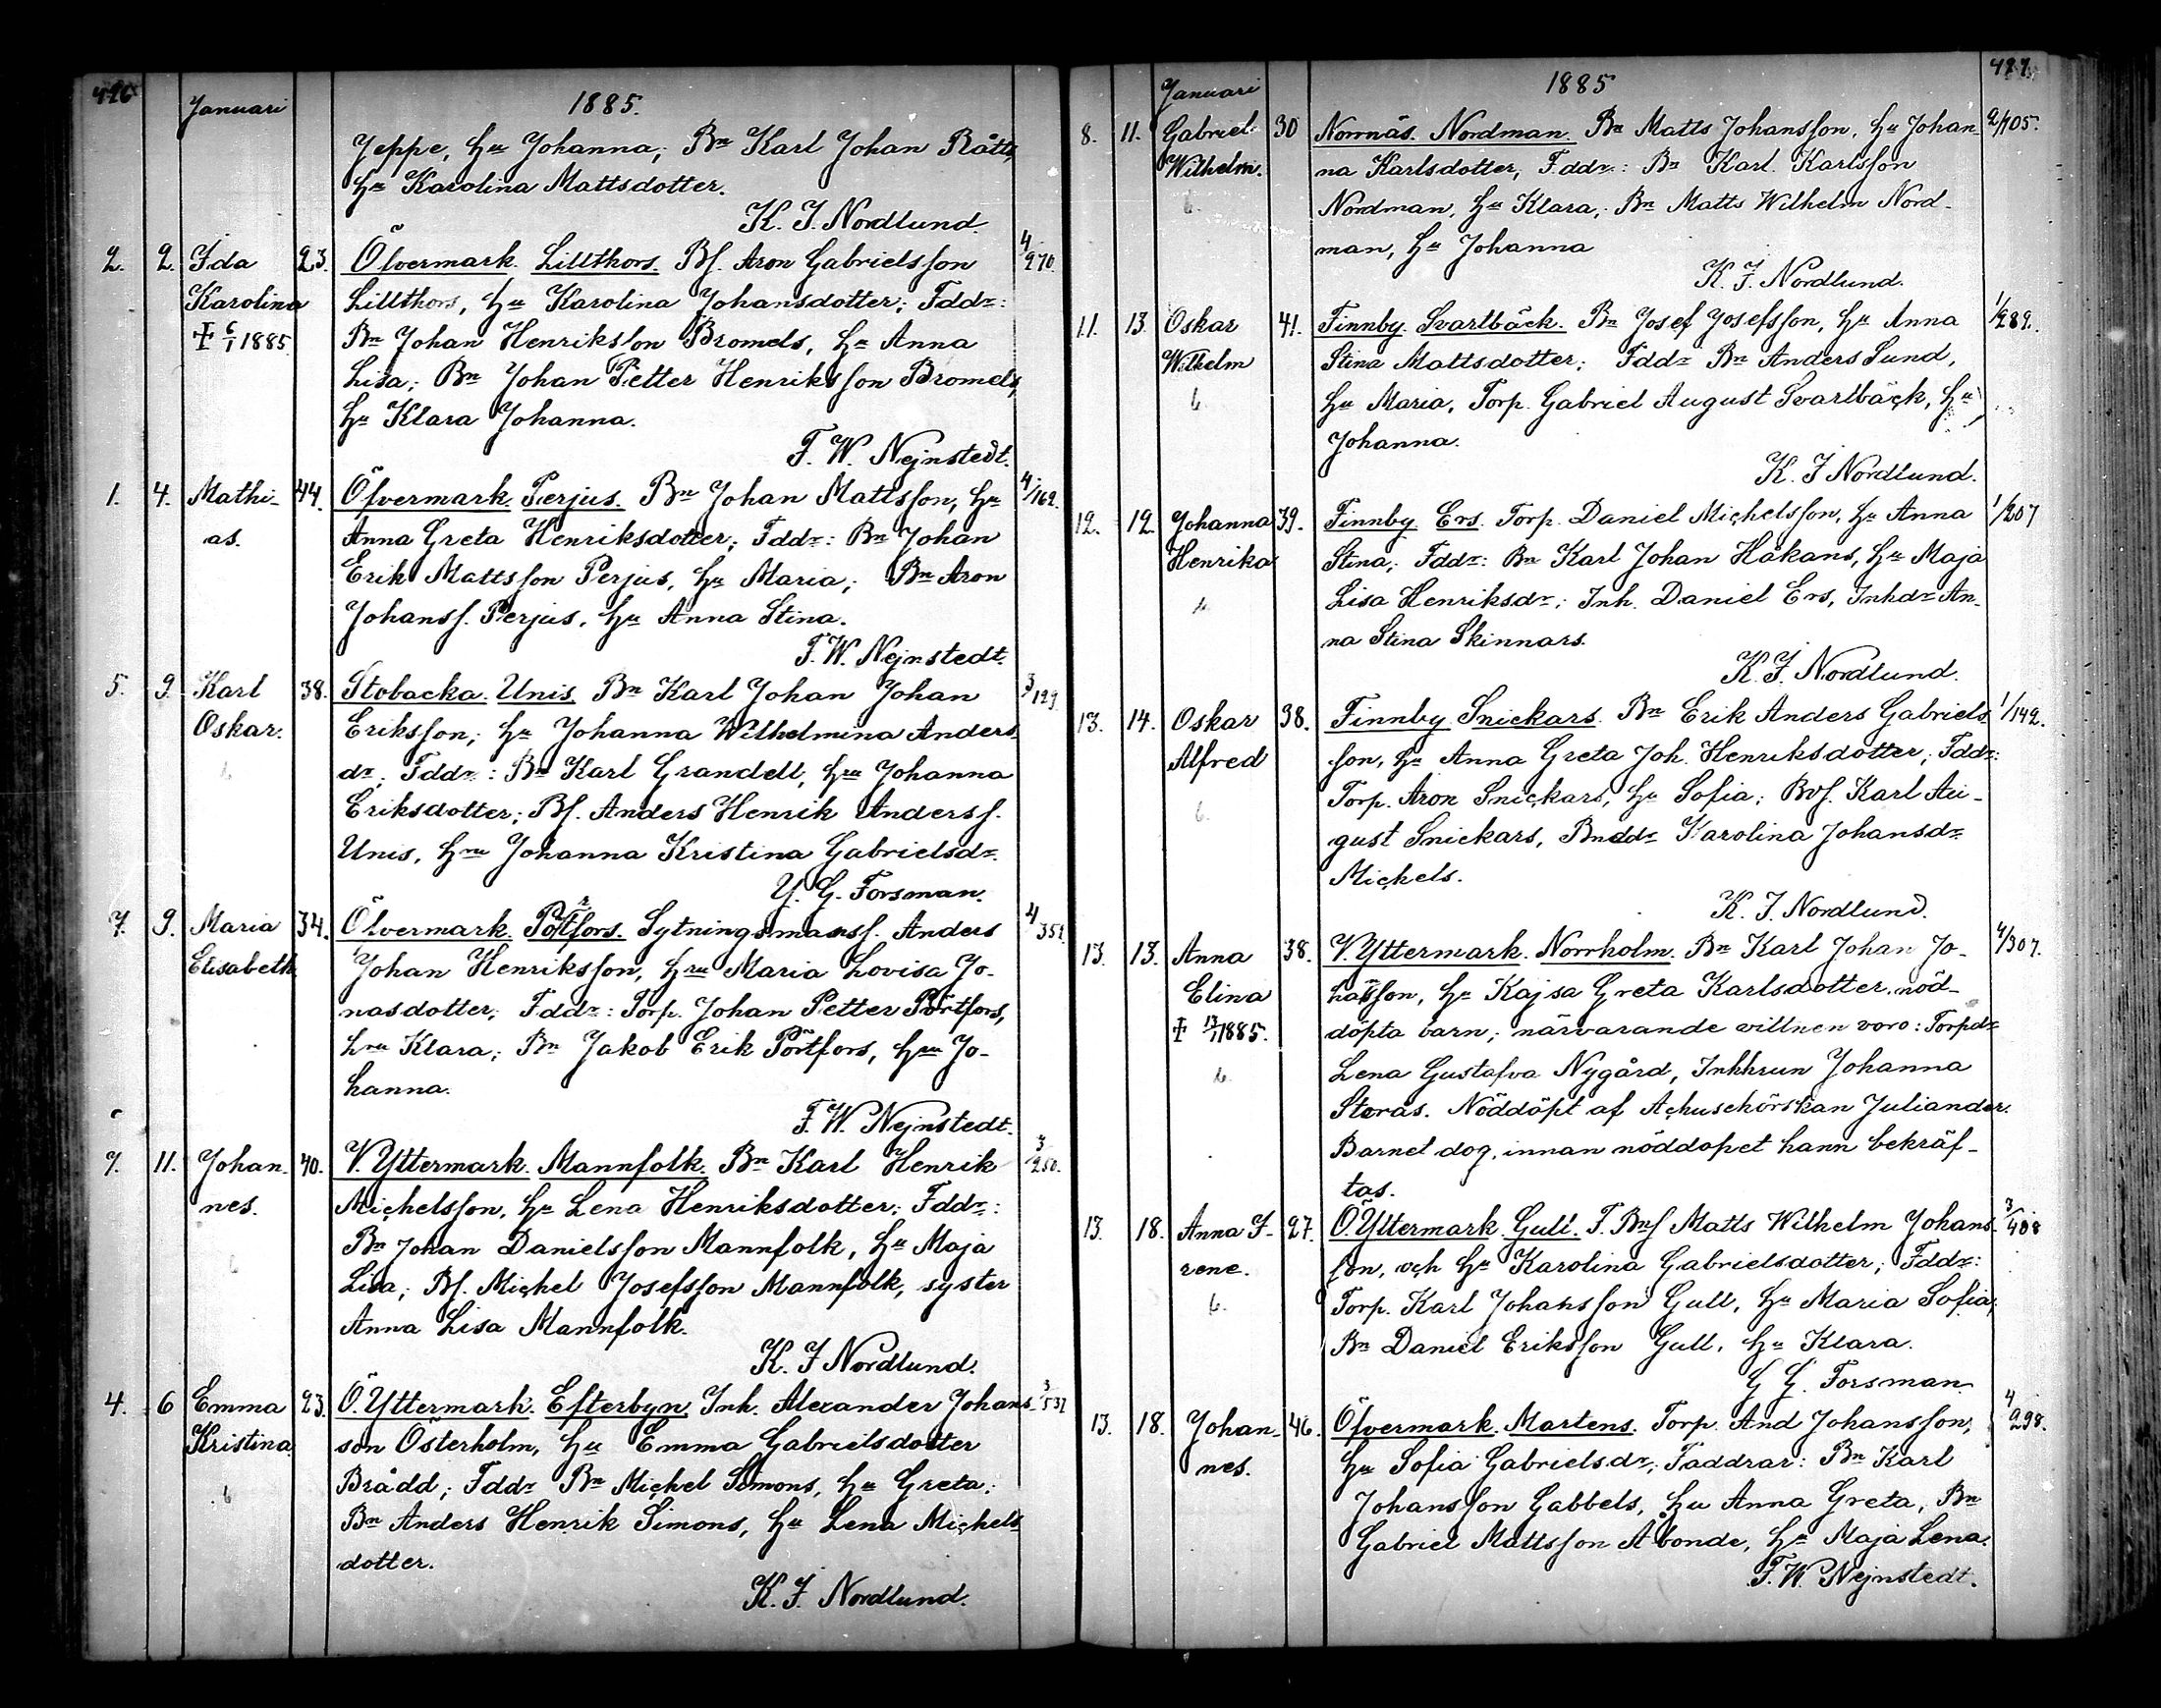 Januari 1885.
Jeppe, hu Johanna; Bn Karl Johan Rått,
hu Karolina Mattsdotter.
K. J. Nordlund.
2. 2. Ida 23. Öfvermark. Lillthors. Bs. Aron Gabrielsson 4/270.
Karolina Lillthors, hu Karolina Johansdotter; Fddr:
† 6/1 1885 Bn Johan Henriksson Bromels, hu Anna
Lisa; Bn Johan Petter Henriksson Bromels,
hu Klara Johanna.
F. W. Nejnstedt.
1. 4. Mathi- 44. Öfvermark. Perjus. Bn Johan Mattsson, hu 4/162.
as. Anna Greta Henriksdotter; Fddr: Bn Johan
Erik Mattsson Perjus, hu Maria; Bn Aron
Johanss. Perjus, hu Anna Stina.
F. W. Nejnstedt.
5. 9. Karl 38. Stobacka. Unis. Bn Karl Johan Johan 3/129
Oskar. Eriksson; hu Johanna Wilhelmina Anders-
dr; Fddr: Bn Karl Grandell, hru Johanna
Eriksdotter; Bs. Anders Henrik Anderss.
Unis, hru Johanna Kristina Gabrielsdr.
G. G. Forsman.
7. 9. Maria 34. Öfvermark. Pörtfors. Sytningsmanss. Anders 4/351
Elisabeth Johan Henriksson, hru Maria Lovisa Jo-
nasdotter; Fddr: Torp. Johan Petter Pörtfors,
hru Klara; Bn Jakob Erik Pörtfors, hru Jo-
hanna.
F. W. Nejnstedt.
7. 11. Johan- 40. V. Yttermark. Mannfolk. Bn Karl Henrik 3/250.
nes. Michelsson, hu Lena Henriksdotter; Fddr:
Bn Johan Danielsson Mannfolk, hu Maja
Lisa; Bs. Michel Josefsson Mannfolk, syster
Anna Lisa Mannfolk.
K. J Nordlund.
4. 6 Emma 23. Ö. Yttermark. Efterbyn. Inh. Alexander Johans- 3/531
Kristina son Österholm, hu Emma Gabrielsdotter
Brådd; Fddr Bn Michel Simons, hu Greta;
Bn Anders Henrik Simons, hu Lena Michels
dotter.
K. J. Nordlund.
Januari 1885
8. 11. Gabriel 30 Norrnäs. Nordman. Bn Matts Johansson, hu Johan- 2/105.
Wilhelm. na Karlsdotter, Fddr: Bn Karl Karlsson
Nordman, hu Klara; Bn Matts Wilhelm Nord-
man, hu Johanna
K. J. Nordlund.
11. 13. Oskar 41. Finnby. Svartbäck. Bn Josef Josefsson, hu Anna 1/289.
Wilhelm Stina Mattsdotter; Fddr Bn Anders Sund,
hu Maria, Torp. Gabriel August Svartbäck, hu
Johanna.
K. J Nordlund.
12. 12. Johanna 39. Finnby. Ers. Torp. Daniel Michelsson, hu Anna 1/207
Henrika Stina; Fddr: Bn Karl Johan Håkans, hu Maja
Lisa Henriksdr; Inh. Daniel Ers, Inhdr An-
na Stina Skinnars.
K. J. Nordlund.
13. 14. Oskar 38. Finnby. Snickars. Bn Erik Anders Gabriels 1/142.
Alfred son, hu Anna Greta Joh. Henriksdotter; Fddr:
Torp. Aron Snickars, hu Sofia; Bs. Karl Au-
gust Snickars, Bndr Karolina Johansdr
Michels.
K. J. Nordlund.
13. 13. Anna 38. V. Yttermark. Norrholm. Bn Karl Johan Jo- 4/307.
Elina hansson, hu Kajsa Greta Karlsdotter. nöd-
† 13/1 1885. döpta barn; närvarande vittnen voro: Torpdr
Lena Gustafva Nygård, Inhhrun Johanna
Storås. Nöddöpt af Achuschörskan Juliander.
Barnet dog, innan nöddopet hann bekräf-
tas.
13. 18. Anna I- 27. Ö. Yttermark. Gull. F. Bns Matts Wilhelm Johans- 3/408
rene. son, och hu Karolina Gabrielsdotter; Fddr:
Torp. Karl Johansson Gull, hu Maria Sofia;
Bn Daniel Eriksson Gull, hu Klara.
G G. Forsman
13. 18. Johan- 46. Öfvermark. Martens. Torp. And Johansson, 4/298.
nes. hu Sofia Gabrielsdr; Faddrar: Bn Karl
Johansson Gabbels, hu Anna Greta, Bn
Gabriel Mattsson Åbonde, hu Maja Lena.
F. W. Nejnstedt.